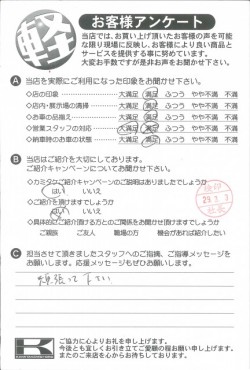 軽
お客様アンケート
当店では、お買い上げ頂いたお客様の声を可能
な限り現場に反映し、お客様により良い商品と
サービスを提供する事に努めています。
大変お手数ですが是非お声をお聞かせ下さい。
A 当店を実際にご利用になった印象をお聞かせ下さい。
◇店の印象 大満足 満足 ふつう やや不満 不満
◇店内・展示場の清掃 大満足 満足 ふつう やや不満 不満
◇お車の品揃え 大満足 満足 ふつう やや不満 不満
◇営業スタッフの対応 大満足 満足 ふつう やや不満 不満
◇納車時のお車の状態 大満足 満足 ふつう やや不満 不満
B 当店はご紹介を大切にしております。
ご紹介キャンペーンについてお聞かせ下さい。
◇カミタケご紹介キャンペーンのご説明はありましたでしょうか
はい いいえ
◇ご紹介を頂けますでしょうか
はい いいえ
◇具体的にご紹介頂ける方とのご関係をお聞かせ頂けますでしょうか
ご親族 ご友人 職場の方 機会があれば紹介したい
C 担当させて頂きましたスタッフへのご指摘、ご指導メッセージを
お願いします。応援メッセージもぜひお願いします。
頑張って下さい
K
ご協力に心よりお礼を申し上げます。
今後とも宜しくお引き立てご愛顧の程お願い申し上げます。
またのご来店を心からお待ちしております。